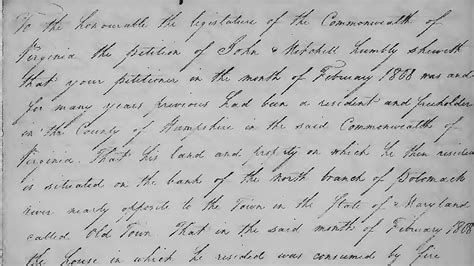 To the honourable the legislature of the Commonwealth of
Virginia the petition of John Mitchell humbly sheweth
that your petitioner in the month of February 1808 was and
for many years previous had been a resident and freeholder
in the County of Hampshire in the said Commonwealth of
Virginia. That his land and property on which he then resided
is situated on the bank of the north branch of Potomack
river nearly opposite to the Town in the State of Maryland
called Old Town That in the said month of February 1808
the House in which he resided was consumed by fire